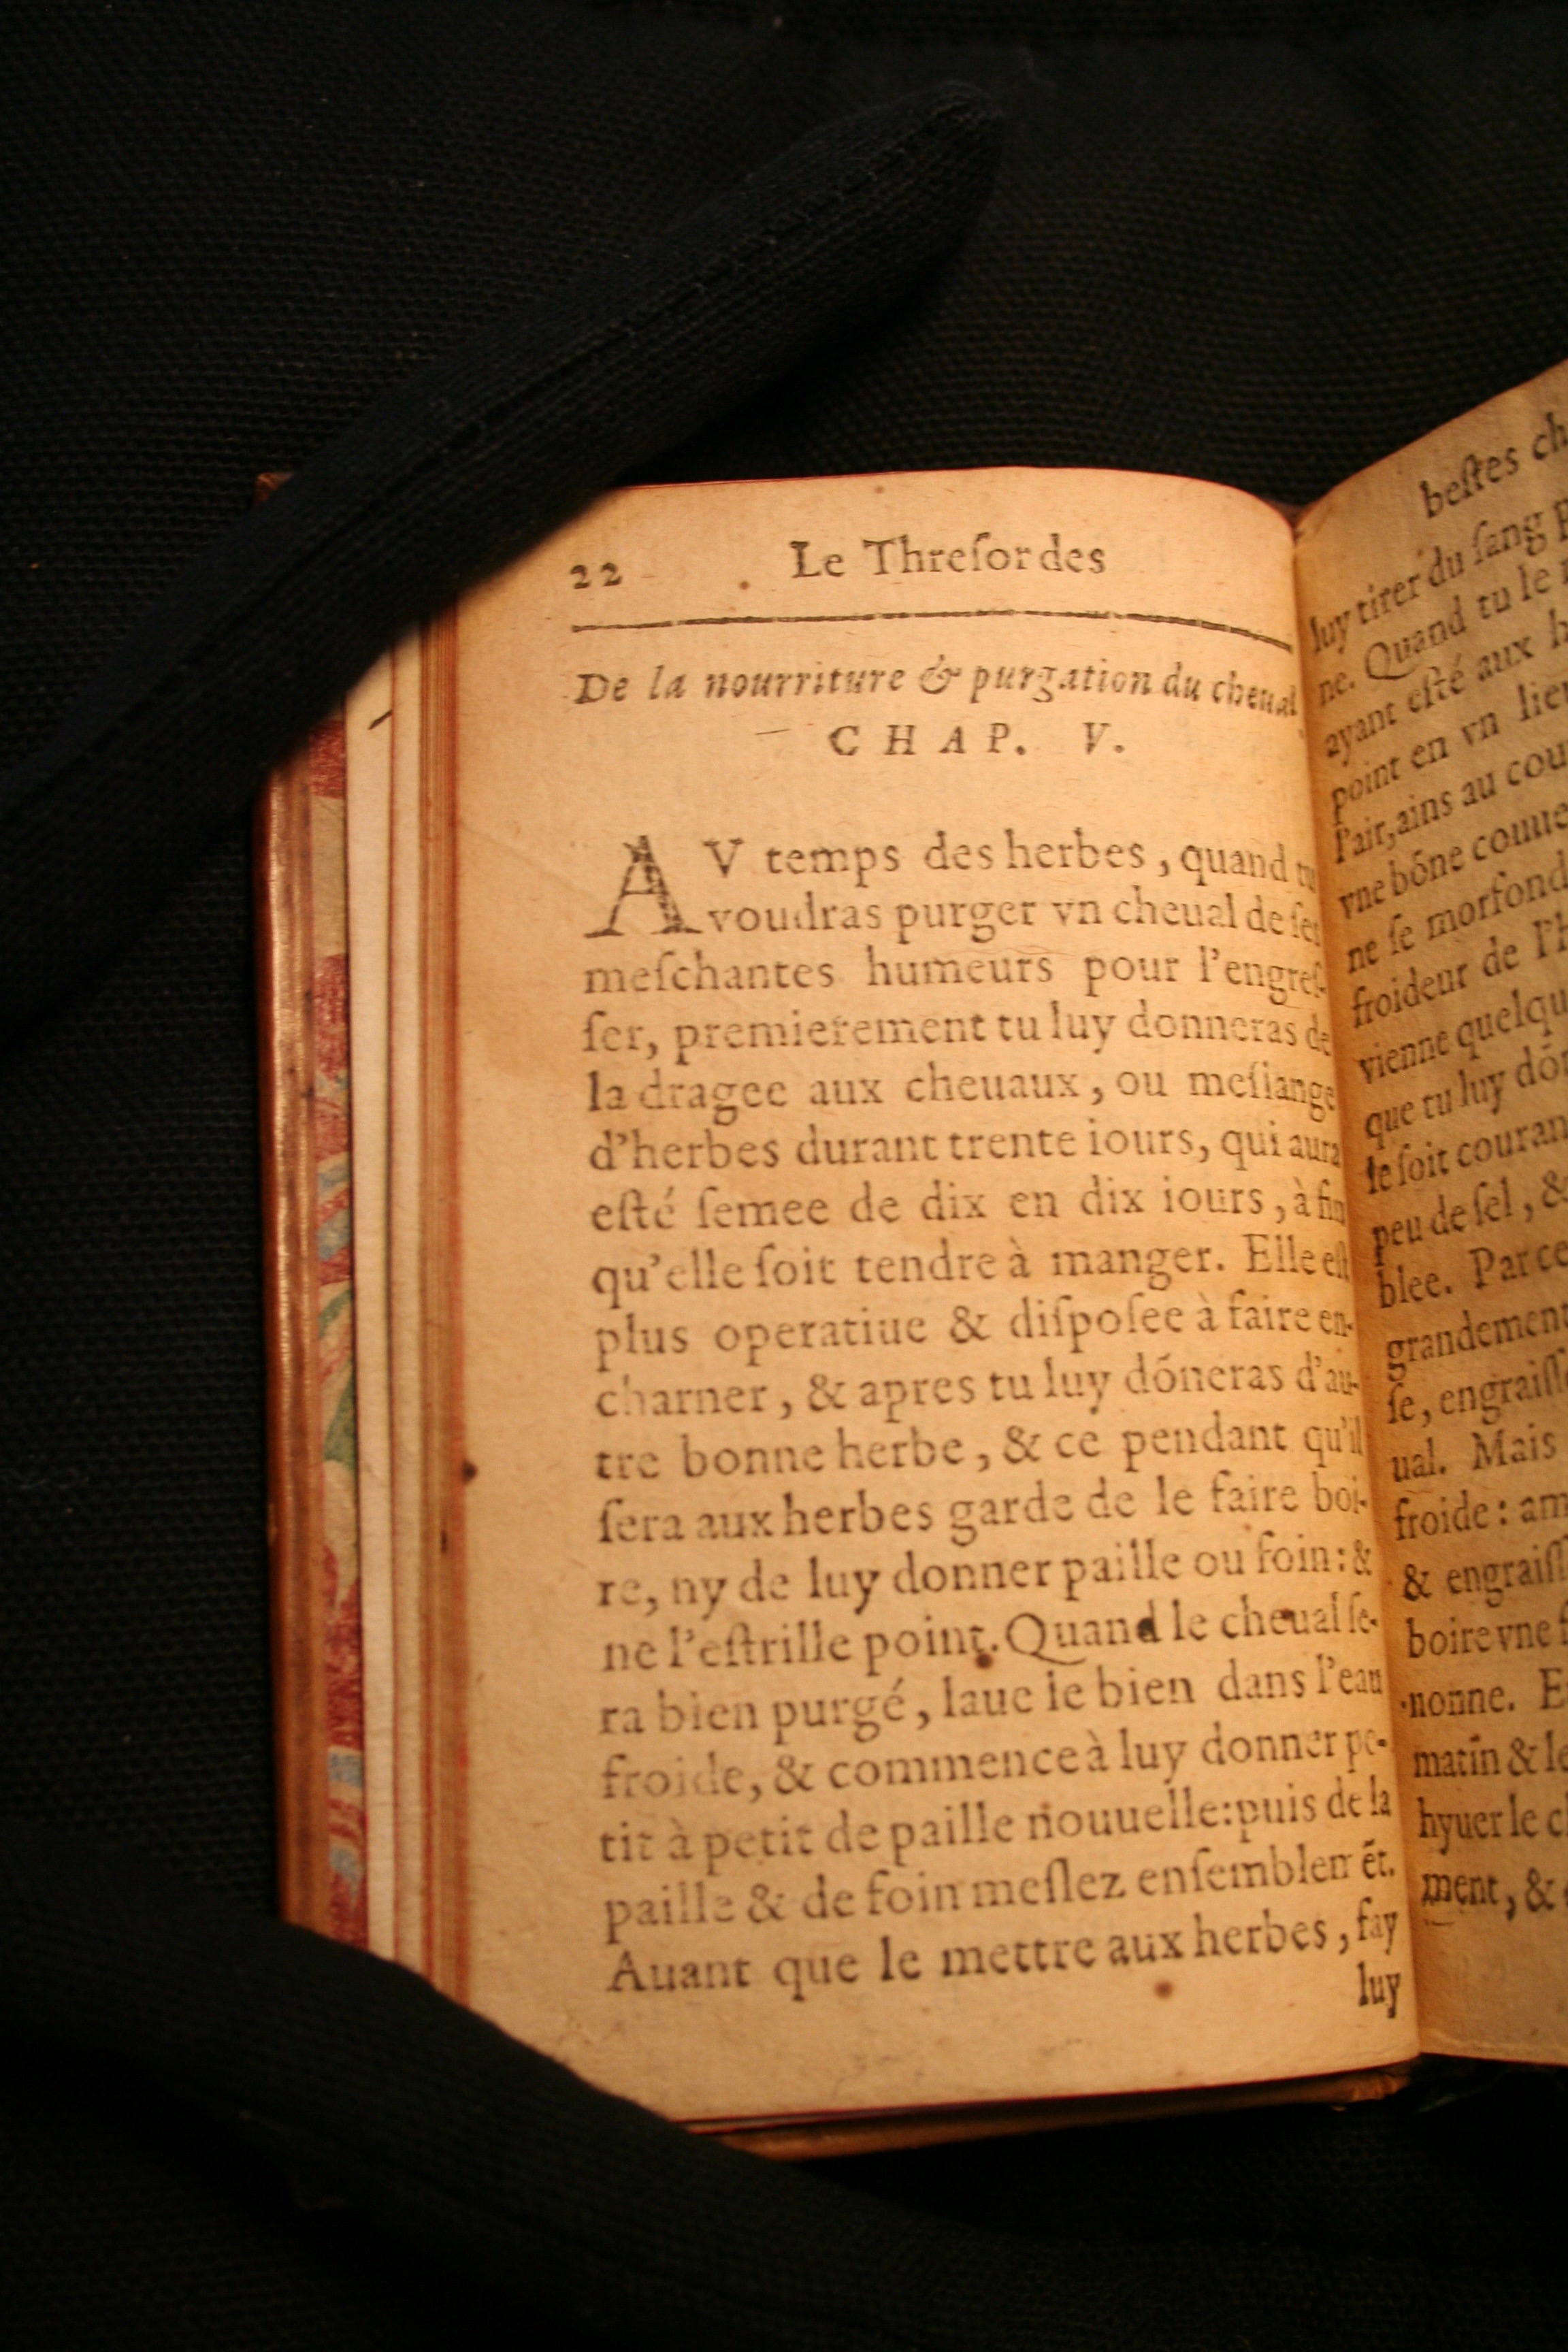 22 Le Threſor des
De la nourriture & purgation du cheual
CHAP. V.
AV temps des herbes, quand tu
voudras purger vn cheual de ſes
meſchantes humeurs pour l'engreſ-
ſer, premierement tu luy donneras de
la dragee aux cheuaux, ou meſlange
d'herbes durant trente iours, qui aura
eſté ſemee de dix en dix iours, à fin
qu'elle ſoit tendre à manger. Elle eſt
plus operatiue & diſpoſee à faire en-
charner, & apres tu luy dóneras d'au-
tre bonne herbe, & ce pendant qu'il
ſera aux herbes garde de le faire boi-
re, ny de luy donner paille ou foin: &
ne l'eſtrille point. Quand le cheual ſe-
ra bien purgé, laue le bien dans l'eau
froide, & commence à luy donner pe-
tit à petit de paille nouuelle: puis de la
paille & de foin meſlez enſemblem ēt.
Auant que le mettre aux herbes, fay
luy
beſtes ch
luy tirer du ſang p
ne. Quand tu le
ayant eſté aux h
point en vn lieu
l'air, ains au cou
vne bōne couue
ne ſe morfond
froideur de l'h
vienne quelqu
que tu luy dō
le ſoit couran
peu de ſel, &
blee. Par ce
grandement
ſe, engraiſſ
ual. Mais
froide: am
& engraiſſ
boire vne f
nonne. E
matin & le
hyuer le c
ment, &